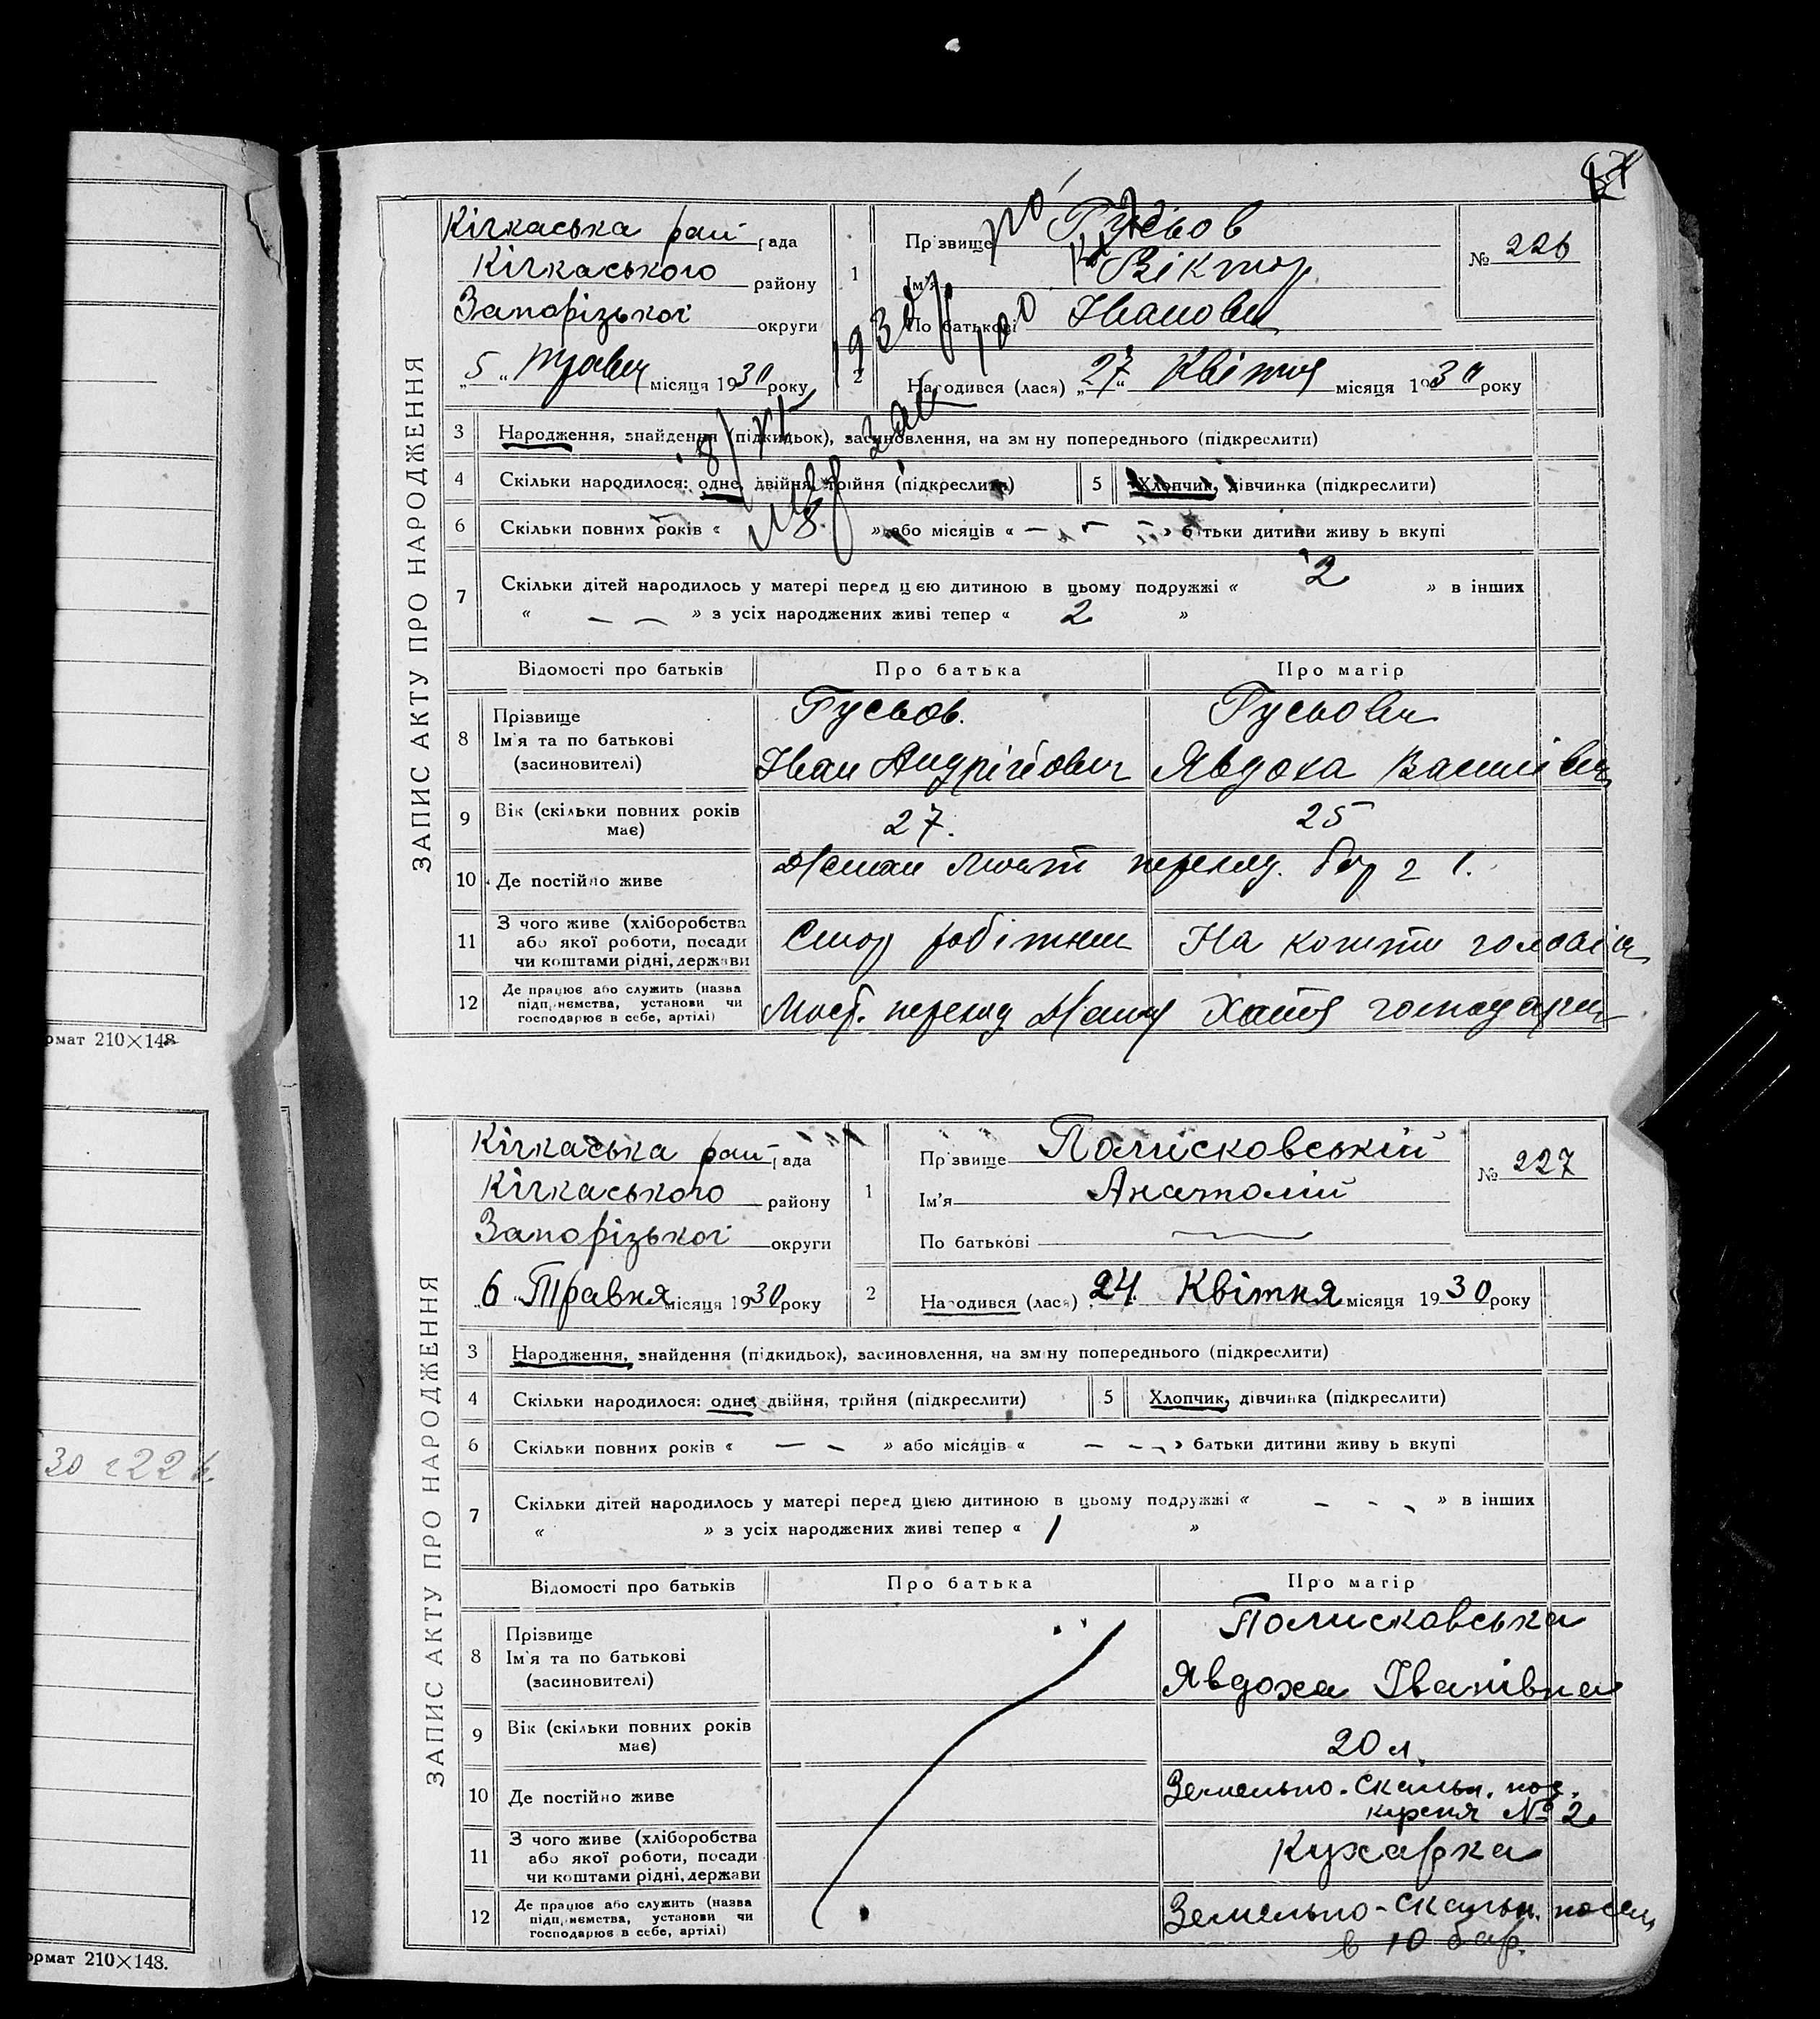 Кічкаська рай рада
Кічкаського району
Запорізької округи
„5“ Травня місяця 1930 року
1
Прізвище Гусьов
Ім'я Віктор
По батькові Іванович
№ 226
2
Народився (лася) „27“ Квітня місяця 1930 року
ЗАПИС АКТУ ПРО НАРОДЖЕННЯ
3 Народження, знайдення (підкидьок), засиновлення, на зміну попереднього (підкреслити)
4 Скільки народилося: одне, двійня, трійня (підкреслити) 5 Хлопчик, дівчинка (підкреслити)
6 Скільки повних років « » або місяців « — — — » батьки дитини живуть вкупі
7 Скільки дітей народилось у матері перед цією дитиною в цьому подружжі « 2 » в інших
« — — » з усіх народжених живі тепер « 2 »
Відомості про батьків Про батька Про матір
8 Прізвище
Ім'я та по батькові
(засиновителі)
Гусьов.
Іван Андрійович
Гусьова
Явдоха Василівна
9 Вік (скільки повних років
має)
27. 25
10 Де постійно живе
перехід. бар 2 1.
11 З чого живе (хліборобства
або якої роботи, посади
чи коштами рідні, держави
робітник На кошти чоловіка
12 Де працює або служить (назва
підприємства, установи чи
господарює в себе, артілі)
Мост. перехід Хатня господарка
ЗАПИС АКТУ ПРО НАРОДЖЕННЯ
Кічкаська рай рада
Кічкаського району
Запорізької округи
„6“ Травня місяця 1930 року
1
Прізвище Полисковський
Ім'я Анатолій
По батькові —
№ 227
2
Народився (лася) „24“ Квітня місяця 1930 року
3 Народження, знайдення (підкидьок), засиновлення, на зміну попереднього (підкреслити)
4 Скільки народилося: одне, двійня, трійня (підкреслити) 5 Хлопчик, дівчинка (підкреслити)
6 Скільки повних років « — — » або місяців « — — — » батьки дитини живуть вкупі
7 Скільки дітей народилось у матері перед цією дитиною в цьому подружжі « — — — » в інших
« » з усіх народжених живі тепер « 1 »
Відомості про батьків Про батька Про матір
8 Прізвище
Ім'я та по батькові
(засиновителі)
Полисковська
Явдоха Іванівна
9 Вік (скільки повних років
має)
20 л.
10 Де постійно живе
Земельно-Скальн. пос.
куреня № 2
11 З чого живе (хліборобства
або якої роботи, посади
чи коштами рідні, держави
Кухарка
12 Де працює або служить (назва
підприємства, установи чи
господарює в себе, артілі)
Земельно-Скальн. посел.
в 10 бар.
рмат 210×148
30 г 22
ормат 210×148.